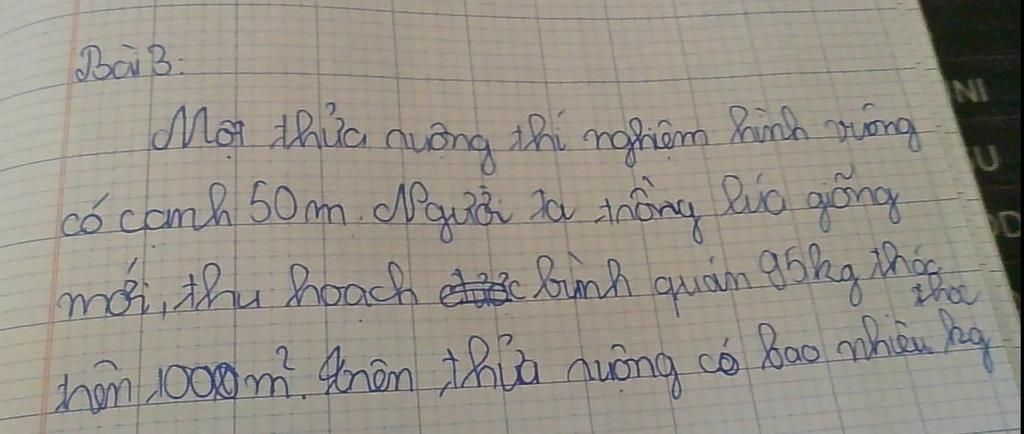 Bài 3:
Một thửa ruộng thí nghiệm hình vuông
có cạnh 50m. Người ta trồng lúa giống
mới, thu hoạch bình quân 95kg thóc
trên 1000m². trên thửa ruộng có bao nhiêu kg
thóc
NI
U